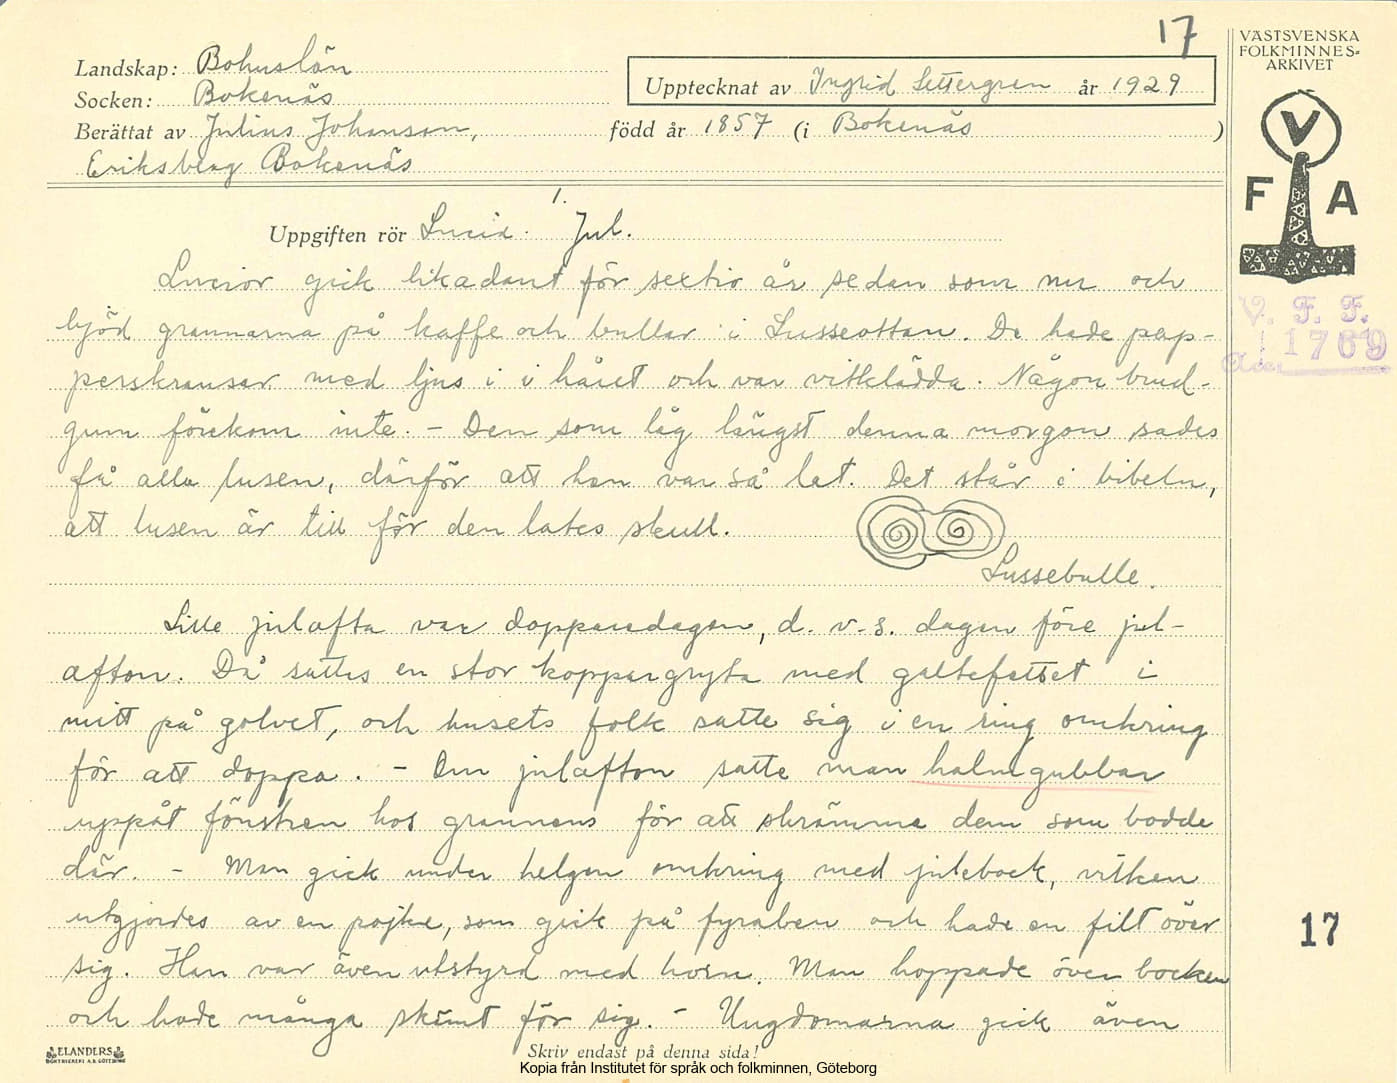 17
VÄSTSVENSKA
FOLKMINNES=
ARKIVET
Landskap: Bohuslän
Upptecknat av Ingrid Settergren år 1929
Socken: Bokenäs
Berättat av Julius Johanson, född år 1857 (i Bokenäs )
Eriksberg Bokenäs
V
F A
1.
Uppgiften rör Lucia. Jul.
Lucior gick likadant för sextio år sedan som nu och
bjöd grannarna på kaffe och bullar i Lusseottan. De hade pap-
perskransar med ljus i i håret och var vitklädda. Någon brud-
gum förekom inte. - Den som låg längst denna morgon sades
få alla lusen, därför att han var så lat. Det står i bibeln,
att lusen är till för den lates skull.
Lussebulle.
V. F. F.
Acc. 1769
Lille julafta var dopparedagen, d. v. s. dagen före jul-
afton. Då sattes en stor koppargryta med galtefettet i
mitt på golvet, och husets folk satte sig i en ring omkring
för att doppa. - Om julafton satte man halmgubbar
uppåt fönstren hos grannens för att skrämma dem som bodde
där. - Man gick under helgen omkring med julebock, vilken
utgjordes av en pojke, som gick på fyraben och hade en filt över
sig. Han var även utstyrd med horn. Man hoppade över bocken
och hade många skämt för sig. - Ungdomarna gick även
17
ELANDERS
BOKTRYCKERI A.B. GÖTEBORG
Skriv endast på denna sida!
Kopia från Institutet för språk och folkminnen, Göteborg